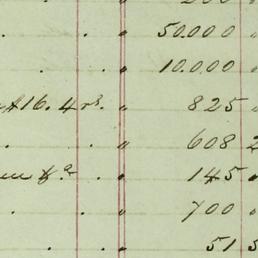 200 "
. " 50.000 "
. . " 10.000 "
A16. 4 rs. " 825 "
. " 608 2
. " 145 .
. " 700 "
. . " 51 5